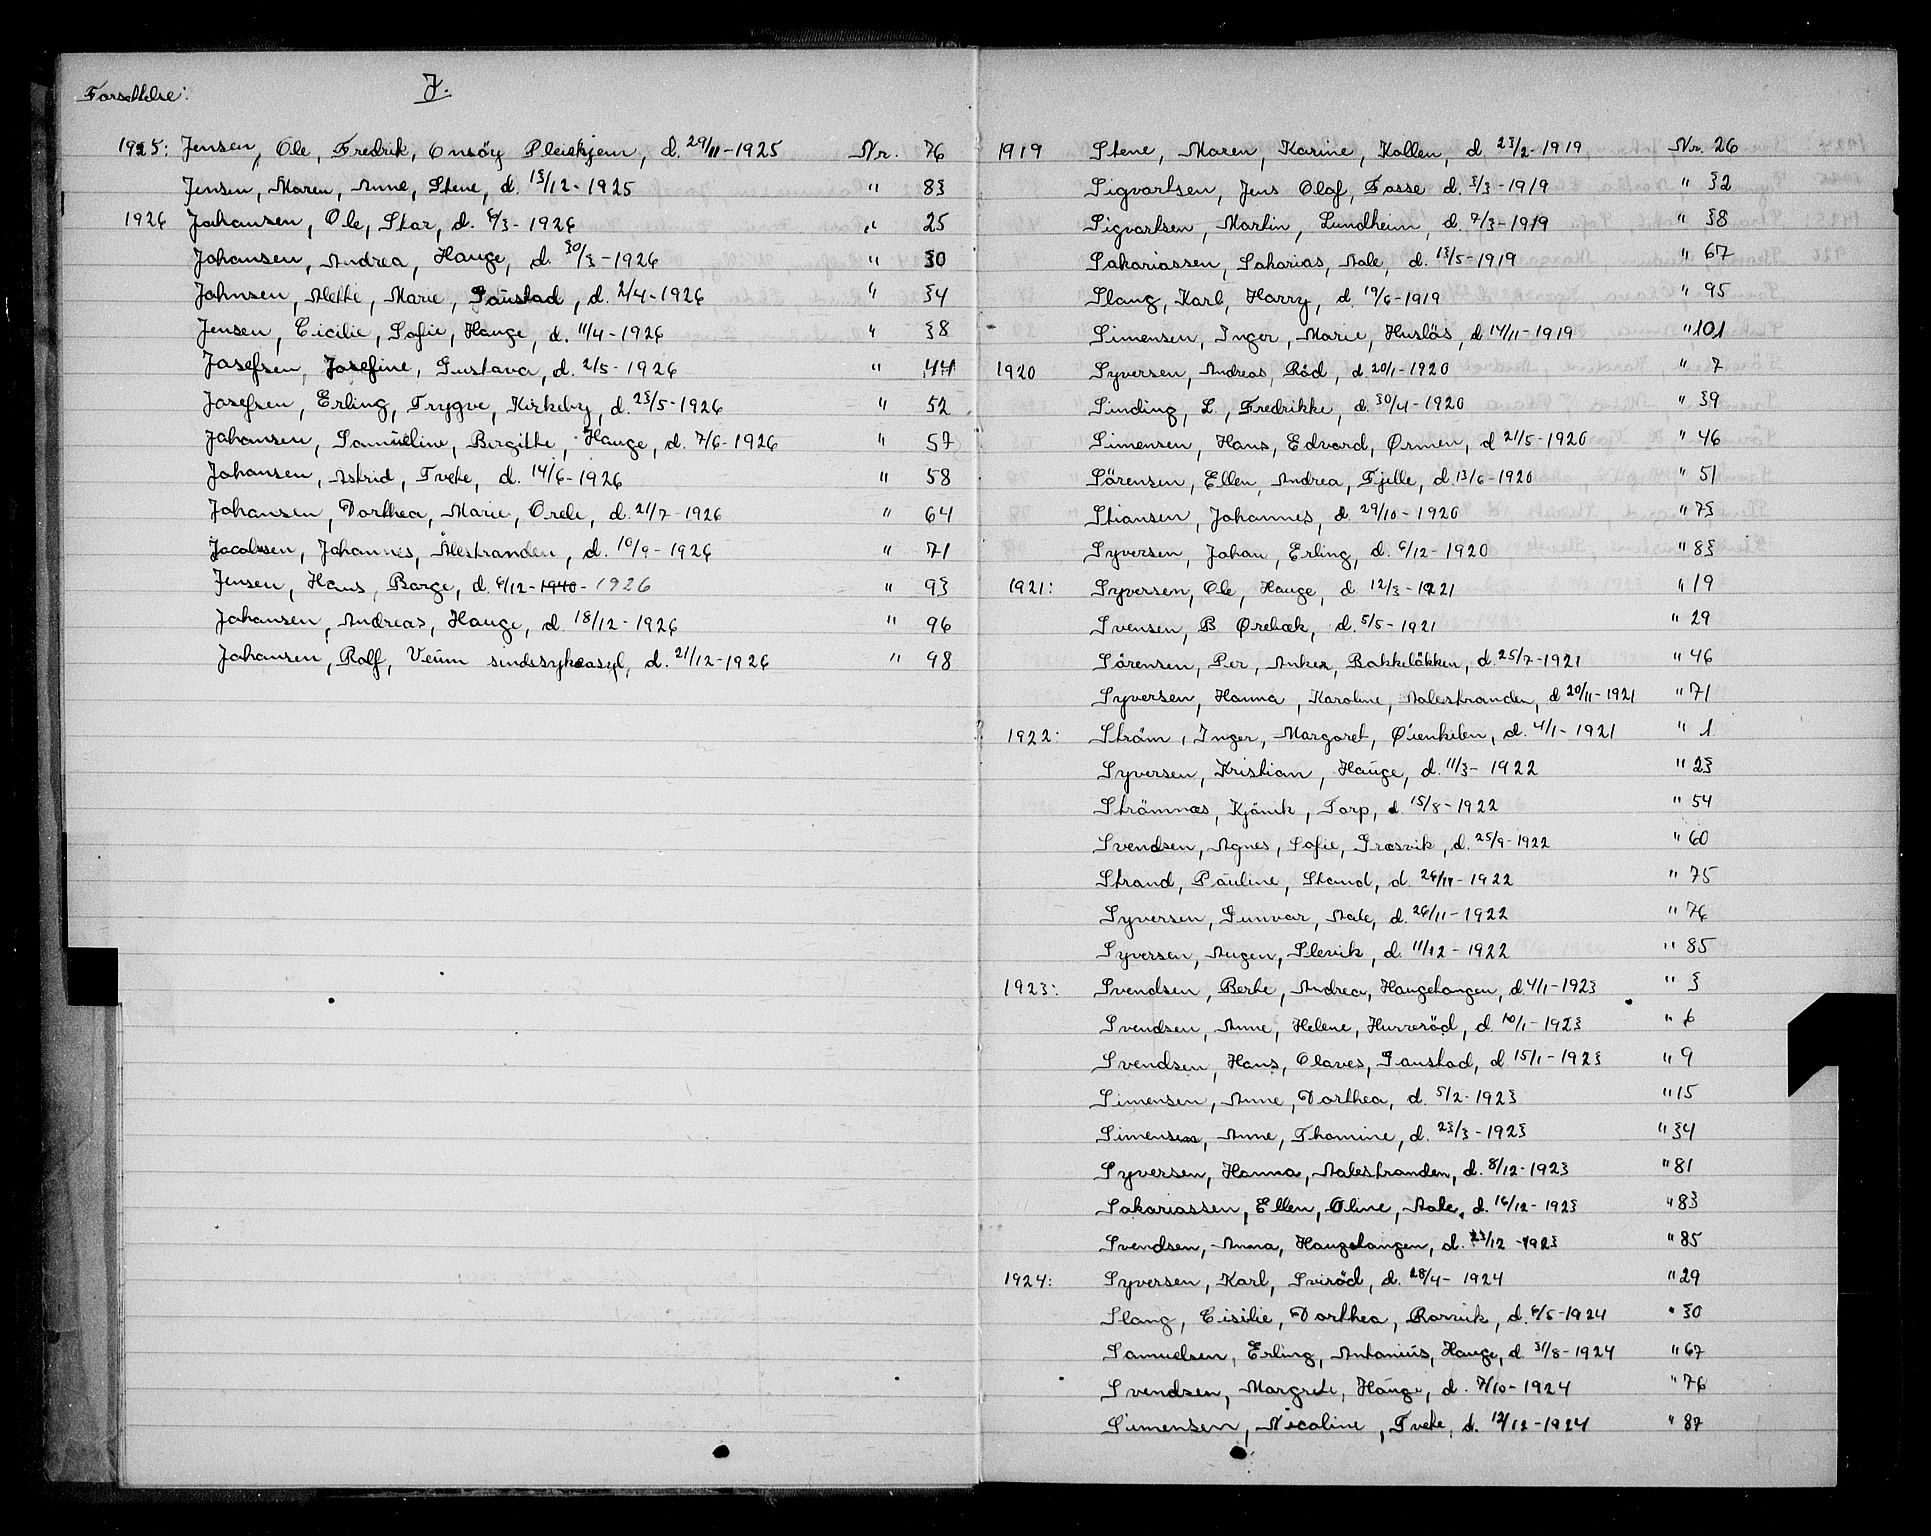 Forsettelse:
J.
1925: Jensen, Ole, Fredrik, Onsöy Pleiehjem, d. 29/11-1925 Nr. 76
Jensen, Maren, Anne, Stene, d. 13/12-1925 " 83
1926 Johansen, Ole, Star, d. 6/3-1926 " 25
Johansen, Andrea, Hauge, d. 30/3-1926 " 30
Johnsen, Mette, Marie, Gaustad, d. 2/4-1926 " 34
Jensen, Cicilie, Sofie, Hauge, d. 11/4-1926 " 38
Josefsen, Josefine, Gustava, d. 2/5-1926 " 44
Josefsen, Erling, Trygve, Kirkeby, d. 23/5-1926 " 52
Johansen, Samueline, Birgitte, Hauge, d. 7/6-1926 " 57
Johansen, Astrid, Tvete, d. 14/6-1926 " 58
Johansen, Dorthea, Marie, Orele, d. 21/7-1926 " 64
Jacobsen, Johannes, Ålestranden, d. 10/9-1926 " 71
Jensen, Hans, Borge, d. 6/12-1940-1926 " 93
Johansen, Andreas, Hauge, d. 18/12-1926 " 96
Johansen, Rolf, Veum sindssykeasyl, d. 21/12-1926 " 98
1919 Stene, Maren, Karine, Kollen, d. 23/2-1919 Nr. 26
Sigvartsen, Jens Olaf, Fosse d. 3/3-1919 " 32
Sigvartsen, Martin, Lundheim, d. 7/3-1919 " 38
Sakariassen, Sakarias, Aale, d. 13/5-1919 " 67
Slang, Karl, Harry, d. 19/6-1919 " 95
Simensen, Inger, Marie, Huslös, d 14/11-1919 " 101
1920 Syversen, Andreas, Röd, d. 20/1-1920 " 7
Sinding, L, Fredrikke, d. 30/4-1920 " 39
Simensen, Hans, Edvard, Ørmen, d 21/5-1920 " 46
Sörensen, Ellen, Andrea, Fjelle, d. 13/6-1920 " 51
Stiansen, Johannes, d. 29/10-1920 " 73
Syversen, Johan, Erling, d. 6/12-1920 " 83
1921: Syversen, Ole, Hauge, d 12/3-1921 " 19
Svensen, B Ørebæk, d. 5/5-1921 " 29
Sörensen, Per, Anker, Bakkelökken, d. 25/7-1921 " 46
Syversen, Hanna, Karoline, Aalestranden, d 20/11-1921 " 71
1922: Ström, Inger, Margaret, Øienkilen, d. 4/1-1921 " 1
Syversen, Kristian, Hauge, d. 11/3-1922 " 23
Strömnæs, Kjönik, Torp, d. 15/8-1922 " 54
Svendsen, Agnes, Sofie, Græsvik, d. 25/9-1922 " 60
Strand, Pauline, Stand, d. 24/11-1922 " 75
Syversen, Gunvor, Aale, d. 26/11-1922 " 76
Syversen, Augen, Slevik, d. 11/12-1922 " 85
1923: Svendsen, Berte, Andrea, Haugetangen, d. 4/1-1923 " 3
Svendsen, Anne, Helene, Hurreröd, d. 10/1-1923 " 6
Svendsen, Hans, Olaves, Gaustad, d 15/1-1923 " 9
Simensen, Anne, Dorthea, d. 5/2-1923 " 15
Simensen, Anne, Thomine, d. 23/3-1923 " 34
Syversen, Hanna, Aalestranden, d. 8/12-1923 " 81
Sakariassen, Ellen, Oline, Aale, d. 16/12-1923 " 83
Svendsen, Anna, Haugetangen, d. 23/12-1923 " 85
1924: Syversen, Karl, Sviröd, d. 28/4-1924 " 29
Slang, Cisilie, Dorthea, Rørvik, d. 6/5-1924 " 30
Samuelsen, Erling, Antonius, Hauge, d. 31/8-1924 " 67
Svendsen, Margrete, Hauge, d. 7/10-1924 " 76
Simensen, Nicoline, Tvete, d. 12/12-1924 " 87